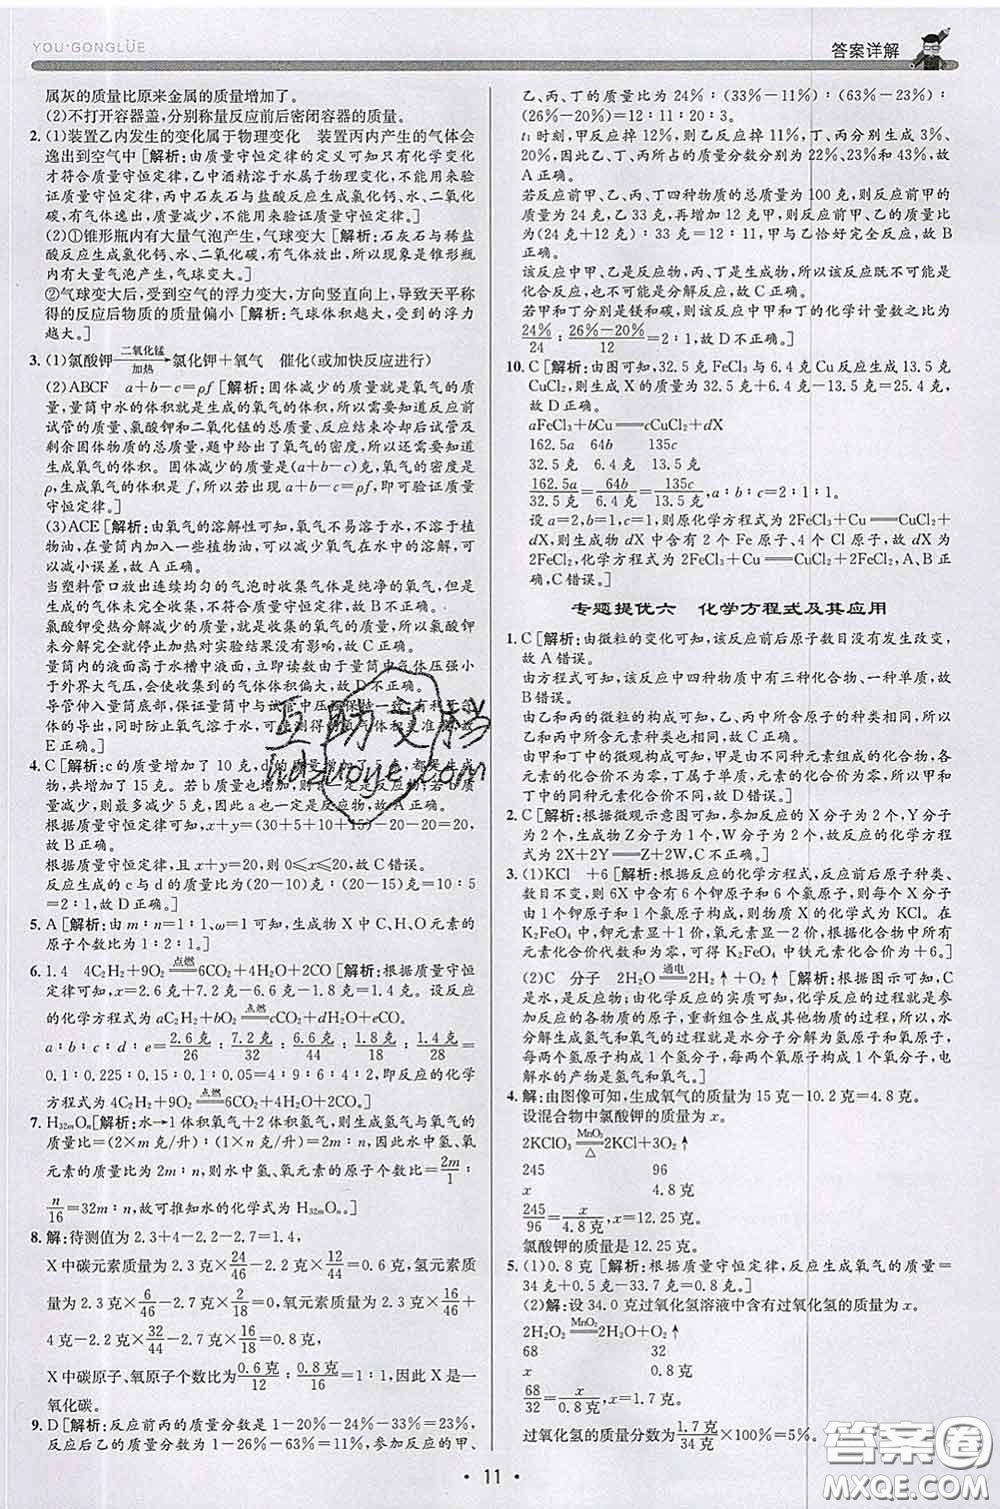 YOU·GONGLÜE
答案详解
属灰的质量比原来金属的质量增加了。
(2)不打开容器盖,分别称量反应前后密闭容器的质量。
2. (1)装置乙内发生的变化属于物理变化　装置丙内产生的气体会
逸出到空气中 [解析:由质量守恒定律的定义可知只有化学变化
才符合质量守恒定律,乙中酒精溶于水属于物理变化,不能用来验
证质量守恒定律,丙中石灰石与盐酸反应生成氯化钙、水、二氧化
碳,有气体逸出,质量减少,所以不能用来验证质量守恒定律。]
(2)①锥形瓶内有大量气泡产生,气球变大 [解析:石灰石与稀盐
酸反应生成氯化钙、水、二氧化碳,有气体产生,所以现象是锥形瓶
内有大量气泡产生,气球变大。]
②气球变大后,受到空气的浮力变大,方向竖直向上,导致天平称
得的反应后物质的质量偏小 [解析:气球体积越大,受到的浮力
越大。]
3. (1)氯酸钾 二氧化锰/加热→ 氯化钾＋氧气　催化(或加快反应进行)
(2)ABCF　a＋b－c＝ρf [解析:固体减少的质量就是氧气的质
量,量筒中水的体积就是生成的氧气的体积,所以需要知道反应前
试管的质量、氯酸钾和二氧化锰的总质量、反应后冷却至试管及
剩余固体物质的总质量,题中给出了氧气的密度,所以需要知道
生成氧气的体积。固体减少的质量是(a＋b－c),氧气的密度是
ρ,生成氧气的体积是f,所以若出现 a＋b－c＝ρf,即可验证质量
守恒定律。]
(3)ACE [解析:由氧气的溶解性可知,氧气不易溶于水,不溶于植
物油,在量筒内一些植物油,可以减少氧气在水中的溶解,可以
减小误差,故 A正确。
当塑料管口放出连续均匀的气泡时收集气体是纯净的氧气,但是
生成氧气的体积包括排出的空气的体积,故 B不正确。
氯酸钾受热分解减少的质量,就是收集的氧气的质量,所以氯酸钾
未分解完全就停止加热对实验结果没有影响,故 C正确。
量筒内的液面高于水槽中液面,立即读数由于量筒中气体压强小
于外界大气压,所以收集的气体体积偏大,故 D不正确。
导管伸入量筒底部,保证量筒中的压强与大气压保持一致,有利气
体的导出,同时防止氧气溶于水,可使测得的氧气体积更准确,故
E正确。]
4. C [解析:c的质量增加了 10 克,
共增加了 15 克。若 b质量也增加,则a一定是反应物;若 b质
量减少,最多减少 5 克,因此a也一定是反应物,故 A正确。
根据质量守恒定律可知,x＋y＝(30＋5＋10＋15)－20－20＝20,
故 B正确。
根据质量守恒定律,且 x＋y＝20,则 0≤x≤20,故 C错误。
反应生成的 c与 d的质量比为(20－10)克∶(20－15)克＝10∶5
＝2∶1,故 D正确。]
5. A [解析:由 m∶n＝1∶1,ω＝0可知,生成物 X中 C、H、O元素的
原子个数比为 1∶2∶1。]
6. 1.4　4C₂H₂＋9O₂ 点燃═ 6CO₂＋4H₂O＋2CO [解析:根据质量守恒
定律可知,x＝2.6克＋7.2克－6.6克－1.8克＝1.4克。设反应
的化学方程式为 aC₂H₂＋bO₂ 点燃═ cCO₂＋dH₂O＋eCO。
a∶b∶c∶d∶e＝2.6克/26∶7.2克/32∶6.6克/44∶1.8克/18∶1.4克/28＝
0.1∶0.225∶0.15∶0.1∶0.05＝4∶9∶6∶4∶2,即反应的化学
方程式为 4C₂H₂＋9O₂ 点燃═ 6CO₂＋4H₂O＋2CO。]
7. H₃₂ₘOₙ [解析:水→1体积氧气＋2体积氢气,则生成氢气与氧气的
质量比＝(2×m克/升)∶(1×n克/升)＝2m∶n,因此水中氢、氧
元素的质量比为 2m∶n,则水中氢、氧元素的原子个数比＝2m/1∶
n/16＝32m∶n,故可推知水的化学式为 H₃₂ₘOₙ。]
8. 解:待测值为 2.3＋4－2.2－2.7＝1.4
X中碳元素质量为 2.3克×24/46－2.2克×12/44＝0.6克,氢元素
质量为 2.3克×6/46－2.7克×2/18＝0,氧元素质量为 2.3克×16/46＋
4克－2.2克×32/44－2.7克×16/18＝0.8克,
X中碳原子、氧原子个数比为0.6克/12∶0.8克/16＝1∶1,则 X是一
氧化碳。
9. D [解析:反应前丙的质量分数是 1－10%－24%－33%＝33%,
反应后乙的质量分数为 1－26%－63%＝11%,参加反应的甲、
乙、丙、丁的质量比为 24%∶(33%－11%)∶(63%－33%)∶
(26%－20%)＝12∶11∶20∶3。
t₁时刻,甲反应掉 12%,则乙反应掉 11%,丙、丁各生成 10%、
20%,故乙、丙、丁所占的质量分数分别为 22%、23%和 43%,故
A正确。
若反应前甲、乙、丙、丁四种物质的总质量为 100 克,反应前甲的
质量为 24克,乙为 33克,再增加 12克甲,则甲、乙的质量比为
(24克＋12克)∶33克＝12∶11,甲与乙恰好完全反应,故 B
正确。
该反应中甲、乙是反应物,丙、丁是生成物,所以该反应既不可能是
化合反应,也不可能是分解反应,故 C正确。
若甲和丁分别是镁和碳,则该反应甲和丁的化学计量数之比为
24%/24∶26%－20%/12＝2∶1,故 D不正确。]
10. C [解析:由图可知,32.5克 FeCl₃与 6.4克 Cu反应生成 13.5克
CuCl₂,则生成 X的质量为 32.5克＋6.4克－13.5克＝25.4克,
故 D正确。
aFeCl₃＋bCu═══cCuCl₂＋dX
162.5a　64b　135c
32.5克　6.4克　13.5克
162.5a/32.5克＝64b/6.4克＝135c/13.5克,a∶b∶c＝2∶1∶1。
设 a＝2,b＝1,c＝1,则原化学方程式为 2FeCl₃＋Cu═══CuCl₂＋
dX,生成物 dX中含有 2个 Fe原子、4个 Cl原子,故 X为
FeCl₂,化学方程式为 2FeCl₃＋Cu═══CuCl₂＋2FeCl₂,A、B正
确,C错误。]
专题提优六　化学方程式及其应用
1. C [解析:由微粒的变化可知,该反应前后原子数目没有发生改变,
故 A错误。
由方程式可知,该反应方程式中有三种化合物、一种单质,故
B错误。
由乙和丙的微粒的构成可知,乙、丙中所含原子的种类相同,所以
乙、丙中所含元素种类也相同,故 C正确。
由甲和丁中的微观构成可知,甲是由不同种元素组成的化合物,各
元素的化合价不为零,丁属于单质,元素的化合价为零,所以甲和
丁中的同种元素化合价不同,故 D错误。]
2. C [解析:根据微观示意图可知,参加反应的 X分子为 2个,Y分子
为 2个,生成物 Z分子为 1个,W分子为 2个,故该反应的化学方程
式为 2X＋2Y═══Z＋2W。]
3. (1)KCl　＋6 [解析:根据反应的化学方程式,反应前后原子种类、
数目不变,则 6X中含有 6个钾原子和 6个氯原子,则每个 X化学
式中含有一个钾原子和一个氯原子,则物质 X的化学式为 KCl。在
K₂FeO₄中,钾元素显＋1价,氧元素显－2价,根据化合物中所有
元素化合价代数和为零,可得 K₂FeO₄中铁元素化合价为＋6。]
(2)C　分子　2H₂O 通电═ 2H₂↑＋O₂↑ [解析:根据图示可知,C
是水,是反应物;由化学反应的实质可知,化学反应的过程就是参
加反应的各物质的原子,重新组合生成其他物质的过程,所以,水
分解生成氢气和氧气的过程就是水分子分解为氢原子和氧原子,
每两个氢原子构成1个氢分子,每两个氧原子构成1个氧分子,电
解水的产物是氢气和氧气。]
4. 解:由图像可知,生成氧气的质量为 15克－10.2克＝4.8克。
设混合物中氯酸钾的质量为 x。
2KClO₃ MnO₂/△═ 2KCl＋3O₂↑
245　96
x　4.8克
245/96＝x/4.8克,x＝12.25克。
氯酸钾的质量是 12.25克。
5. (1)0.8克 [解析:根据质量守恒定律,反应生成氧气的质量＝
34克＋0.5克－33.7克＝0.8克。]
(2)解:设 34.0克过氧化氢溶液中含有过氧化氢的质量为 x。
2H₂O₂ MnO₂═ 2H₂O＋O₂↑
68　32
x　0.8克
68/32＝x/0.8克,x＝1.7克。
过氧化氢的质量分数为1.7克/34克×100%＝5%。
· 11 ·
互助文档
hdzuoye.com
答案圈
MXQE.COM